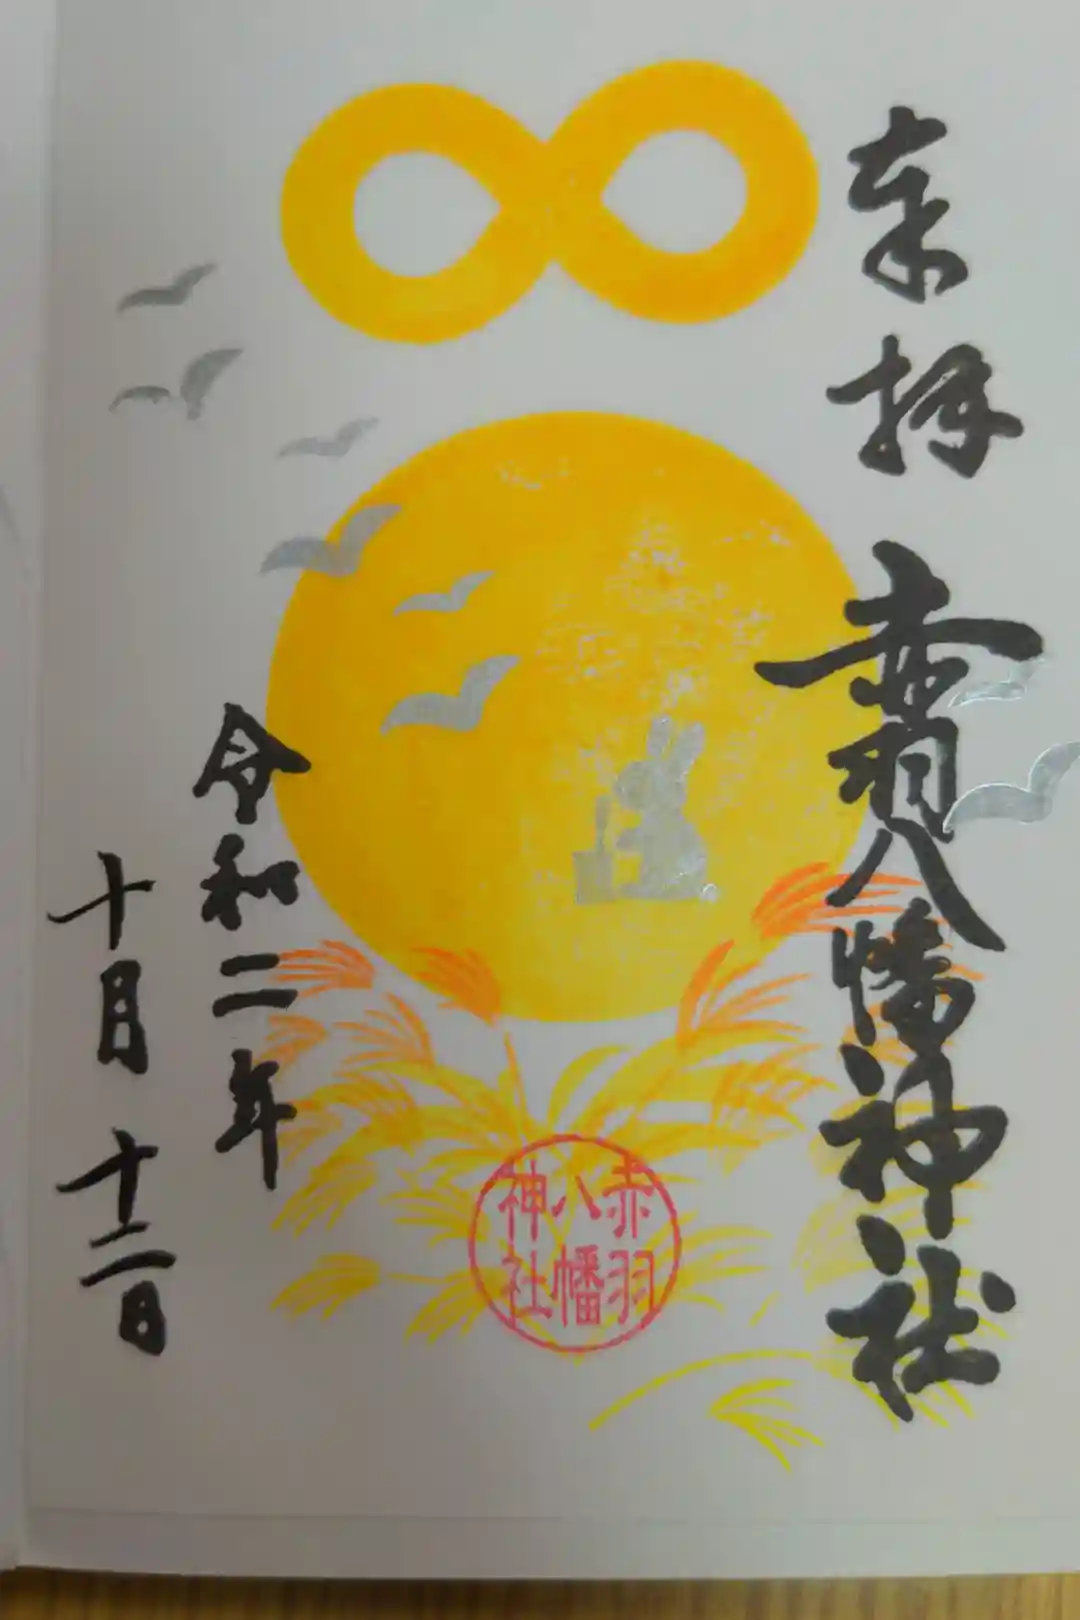 奉拝
赤羽八幡神社
令和二年
十月十二日
赤羽
八幡
神社